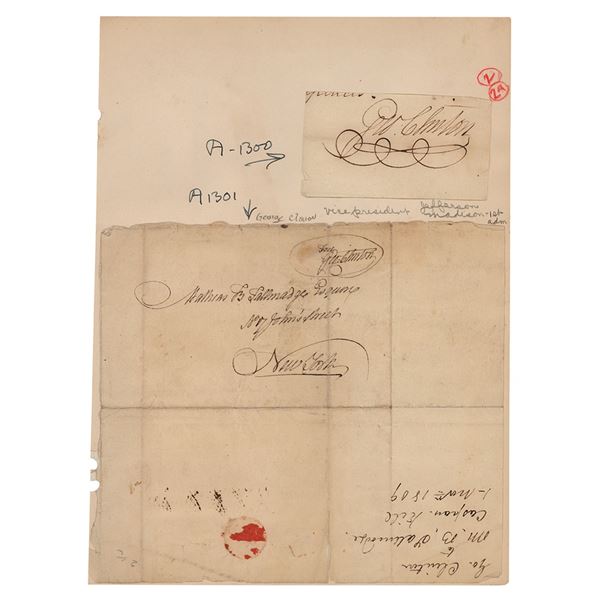 2
29
Geo. Clinton
A-1300
A1301
George Clinton vice president Jefferson
Madison - 1st
adm
Free
Geo. Clinton
Mathias B Tallmadge Esquire
No 7 John's street
New York
Geo Clinton
to
M. B. Talmadge.
1809